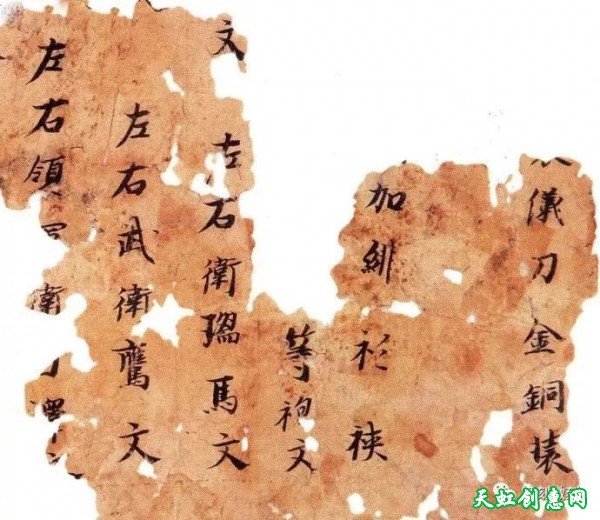 儀刀金銅装
加緋衫裌
等袍文
文 左右衛瑞馬文
左右武衛鷹文
左右領軍衛
天虹创惠网